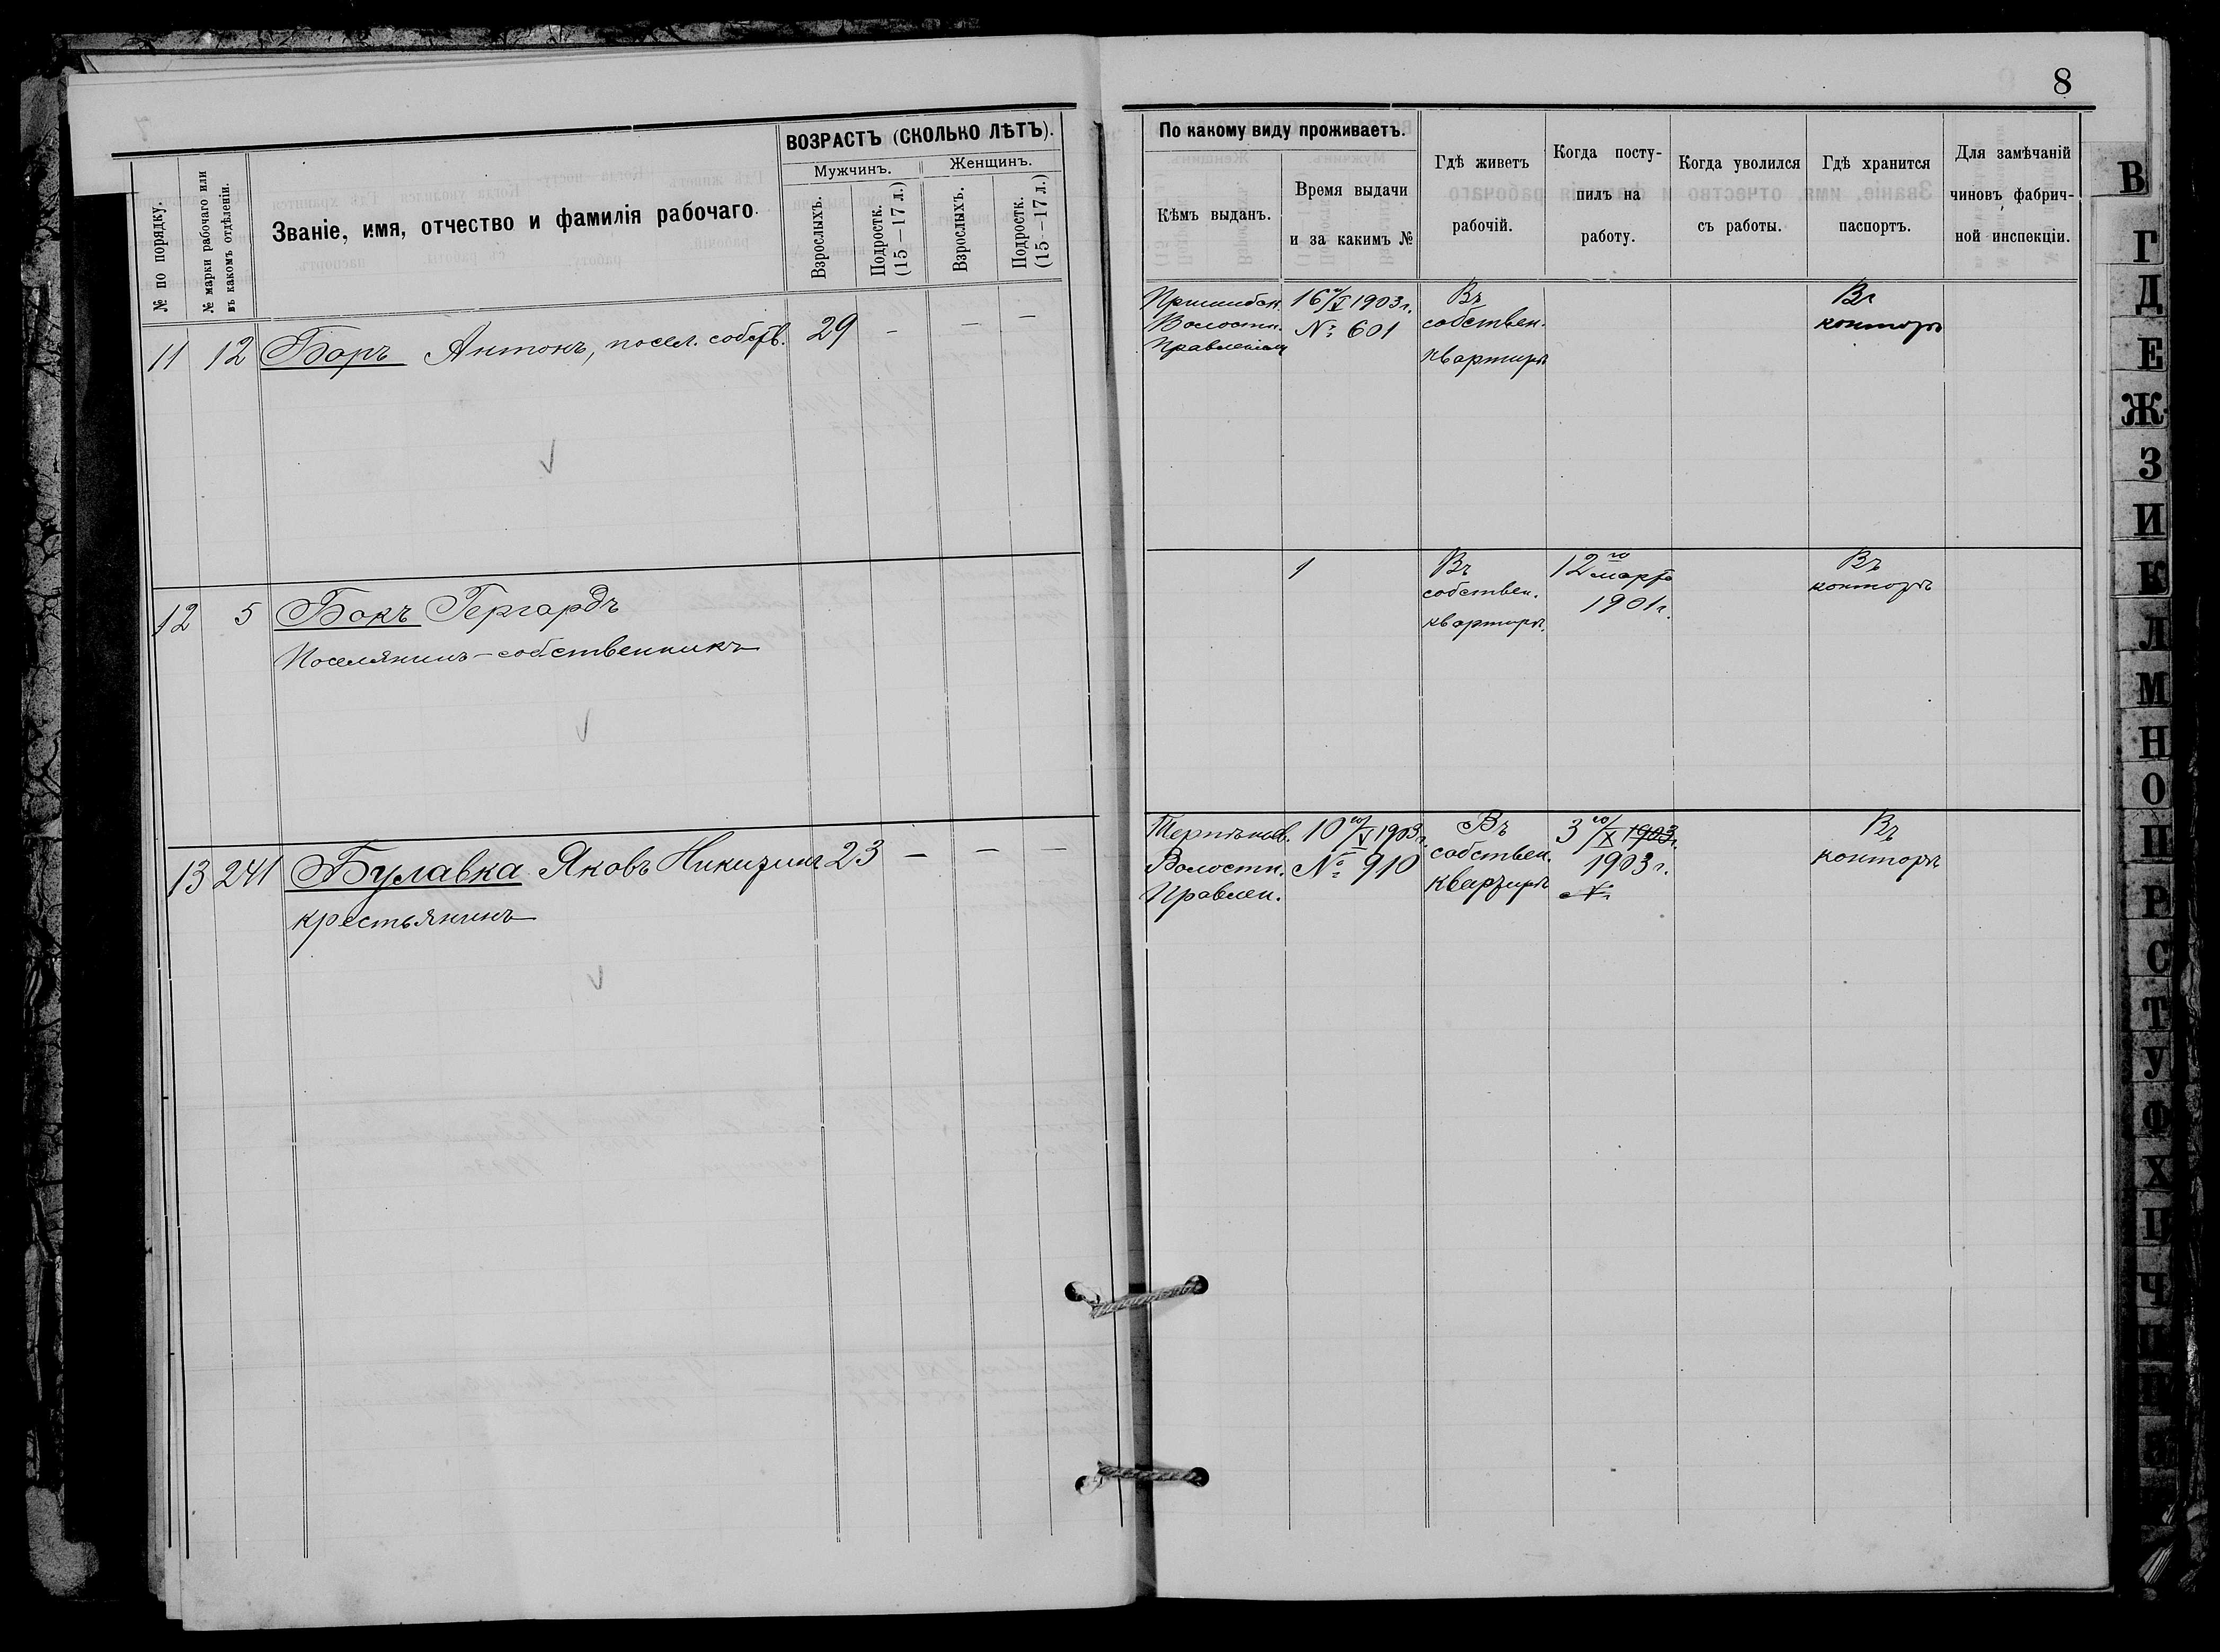 8
ВОЗРАСТЪ (СКОЛЬКО ЛѢТЪ).
Мужчинъ.
Женщинъ.
№ по порядку.
№ марки рабочаго или
въ какомъ отдѣленіи.
Званіе, имя, отчество и фамилія рабочаго.
Взрослыхъ.
Подростк.
(15—17 л.)
Взрослыхъ.
Подростк.
(15—17 л.)
По какому виду проживаетъ.
Кѣмъ выданъ.
Время выдачи
и за какимъ №
Гдѣ живетъ
рабочій.
Когда посту-
пилъ на
работу.
Когда уволился
съ работы.
Гдѣ хранится
паспортъ.
Для замѣчаній
чиновъ фабрич-
ной инспекціи.
11 12 Боръ Антонъ, посел. собств. 29 — — —
Пришибск.
Волостн.
Правленіемъ
16го/V 1903 г.
№ 601
Въ
собствен.
квартирѣ
Въ
конторѣ
12 5 Бокъ Гергардъ
Поселянинъ-собственникъ
1
Въ
собствен.
квартирѣ.
12го
марта
1901 г.
Въ
конторѣ
13 241 Булавка Яковъ 23 — — —
крестьянинъ
Волостн.
Правлен.
10го/V 1903 г.
№ 910
Въ
собствен.
квартирѣ
3го/X 1903 г.
1903 г.
№
Въ
конторѣ
В
Г
Д
Е
Ж
З
И
К
Л
М
Н
О
П
Р
С
Т
У
Ф
Х
Ц
Ч